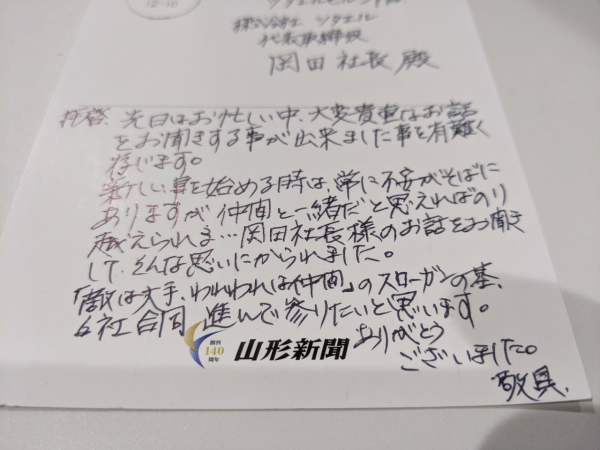 12-18
株式会社 ソウエル
代表取締役
岡田社長殿
拝啓、先日はお忙しい中、大変貴重なお話
をお聞きする事が出来ました事を有難く
存じます。
新しい事を始める時は、常に不安がそばに
ありますが仲間と一緒だと思えればのり
越えられま…岡田社長様のお話をお聞き
して、そんな思いにかられました。
「敵は大手、われわれは仲間」のスローガンの基、
6社合同 進んで参りたいと思います。
ありがとう
ございました。
敬具、
創刊
140
周年
山形新聞